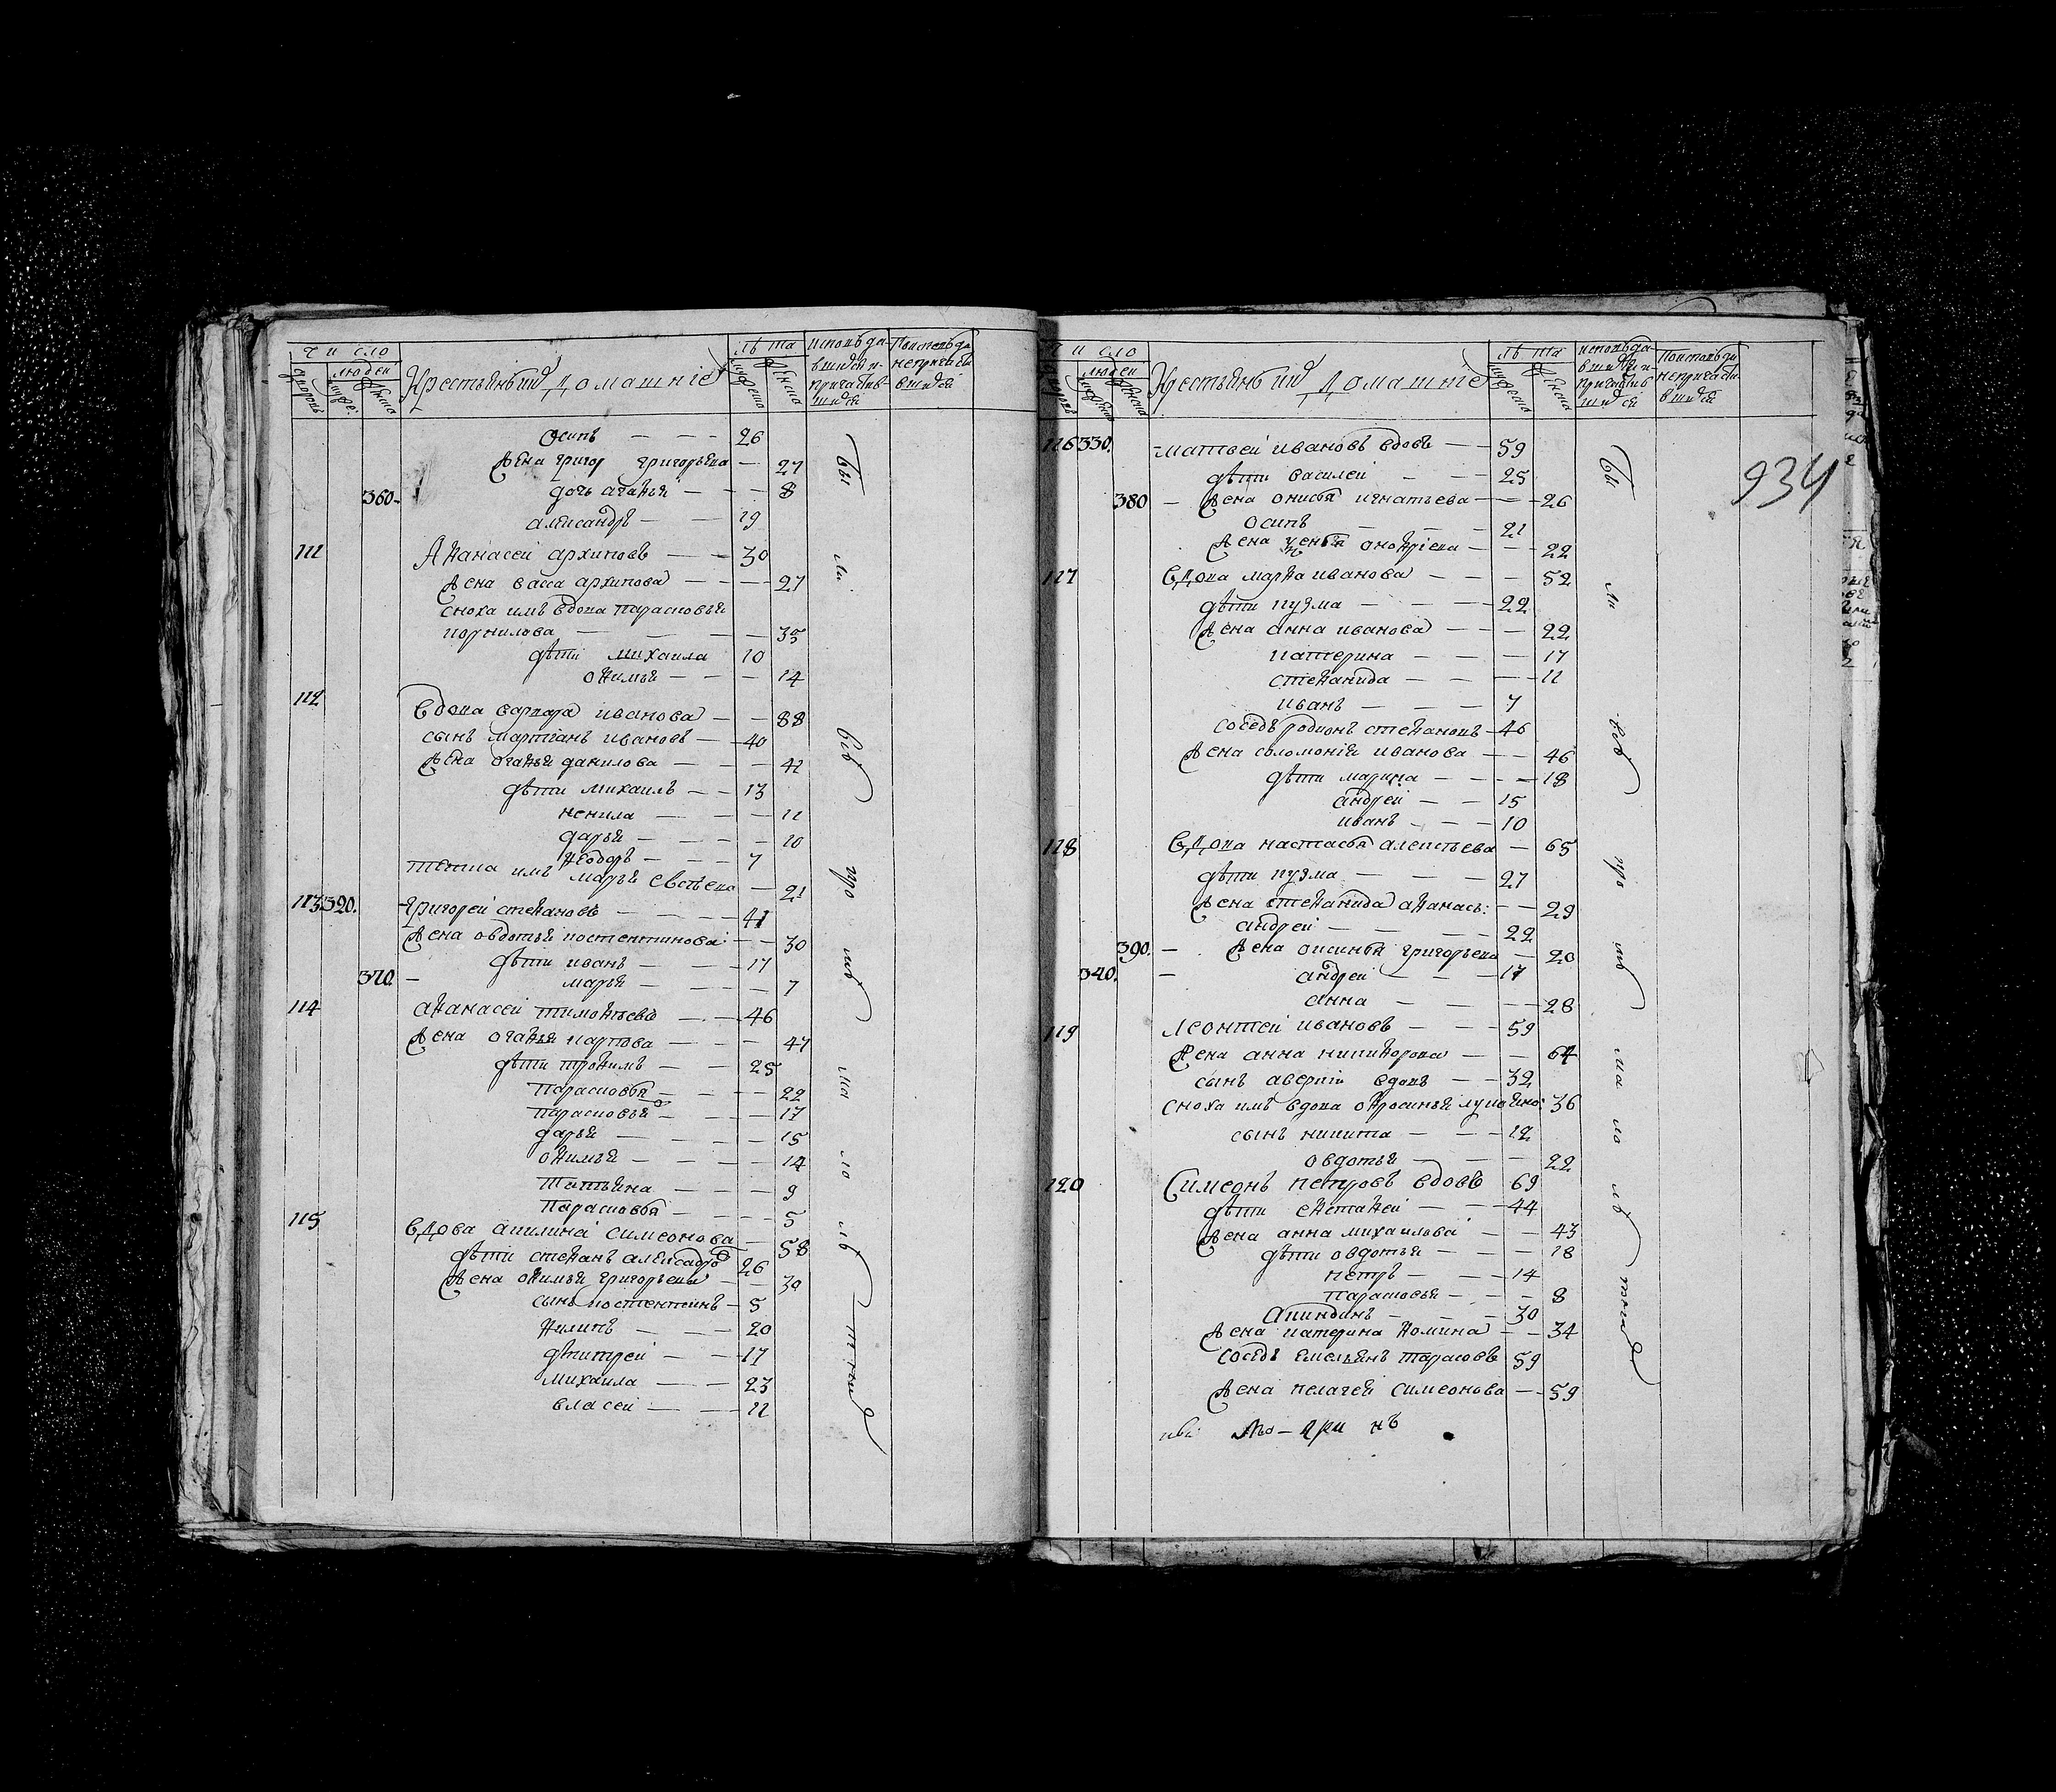 число
людей
Крестьянъ и ихъ домашнiе
лѣта
Осипъ — — — 26
Жена григор григорьева — 27
360 — дочь агафья — — — 8
александръ — — 19
111 Афанасей архиповъ — — 30
Жена васса архипова — — — 27
сноха имъ вдова парасковья
корнилова — — — — 35
дѣти михаила 10
офимья — — — 14
112 Вдова варвара иванова — — 88
сынъ мартiанъ ивановъ — 40
Жена агафья данилова — — — 42
дѣти михаилъ — — 13
ненила — — — 11
дарья — — — 10
феодоръ — — — 7
имъ марья — 21
113 320. григорей стефановъ — — — 41
Жена овдотья костентинова — — 30
дѣти иванъ — — — 17
370. — марья — — — 7
114 афанасей тимофѣевъ — — 46
Жена агафья карпова — — — 47
дѣти трофимъ — — 25
Парасковья — — — 22
парасковья — — — 17
дарья — — — 15
офимья — — — 14
Татьяна — — — 9
Парасковья — — — 5
115 Вдова акилина симеонова — 58
дѣти стефанъ 26
Жена офимья григорьева — — 30
сынъ костентинъ — 5
филипъ — — — 20
дмитрей — — 17
михаила — — 23
власей — — 11
бы
ли
всѣ
число
людей
Крестьянъ и ихъ домашнiе
лѣта
934
116 330. матвей ивановъ вдовъ — — 59
дѣти василей — — 25
380 — Жена игнатьева — — — 26
осипъ — — — 21
Жена онофрiева — — — 22
117 Вдова марфа иванова — — — 52
дѣти кузма — — — 22
Жена анна иванова — — — 22
катерина — — — 17
стефанида — — — 11
иванъ — — — 7
соседъ родионъ стефановъ — 46
Жена соломонiя иванова — — 46
дѣти марина — — — 18
андрей — — 15
иванъ — — — 10
118 Вдова настасья алексѣева — 65
дѣти кузма — — — 27
Жена стефанида афанась: — — 29
андрей — — — 22
390. — Жена оксинья григорьева — 20
340. — андрей — — — 17
анна — — — 28
119 Леонтей ивановъ — — — 59
Жена анна никифорова — — 64
сынъ аверкiи вдовъ — — 32
сноха имъ вдова офросинья 36
сынъ никита — — — 12
овдотья — — — 22
120 Симеонъ петровъ вдовъ 69
дѣти евстафей — — 44
Жена анна михаилова — — 43
дѣти овдотья — — — 18
петръ — — — 14
парасковья — — — 8
Акиндинъ — — — 30
Жена катерина фомина — — 34
соседъ емельянъ тарасовъ 59
Жена пелагея симеонова — — 59
бы
ли
всѣ